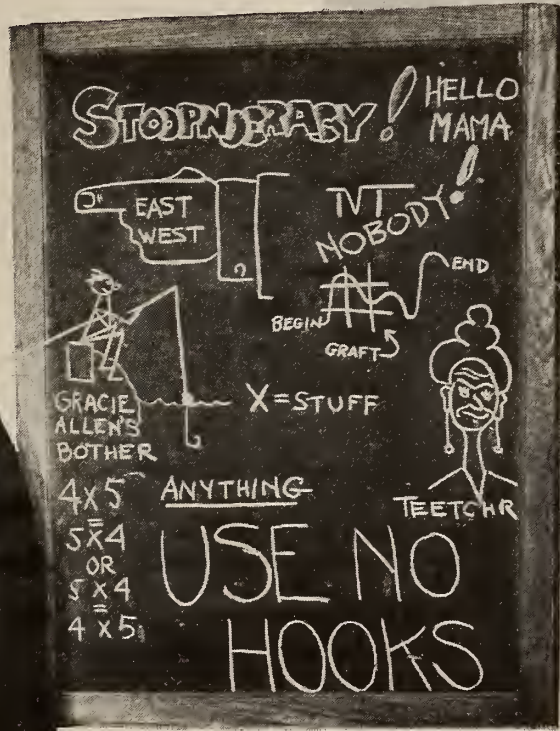 STOOPNOCRACY!
HELLO
MAMA
EAST
WEST
NOBODY!
END
BEGIN
GRAFT
GRACIE
ALLEN'S
BOTHER
X=STUFF
TEETCHR
4X5
=
5X4
OR
5X4
=
4X5
ANYTHING
USE NO
HOOKS